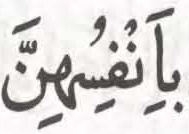 بِاَنْفُسِهِنَّ